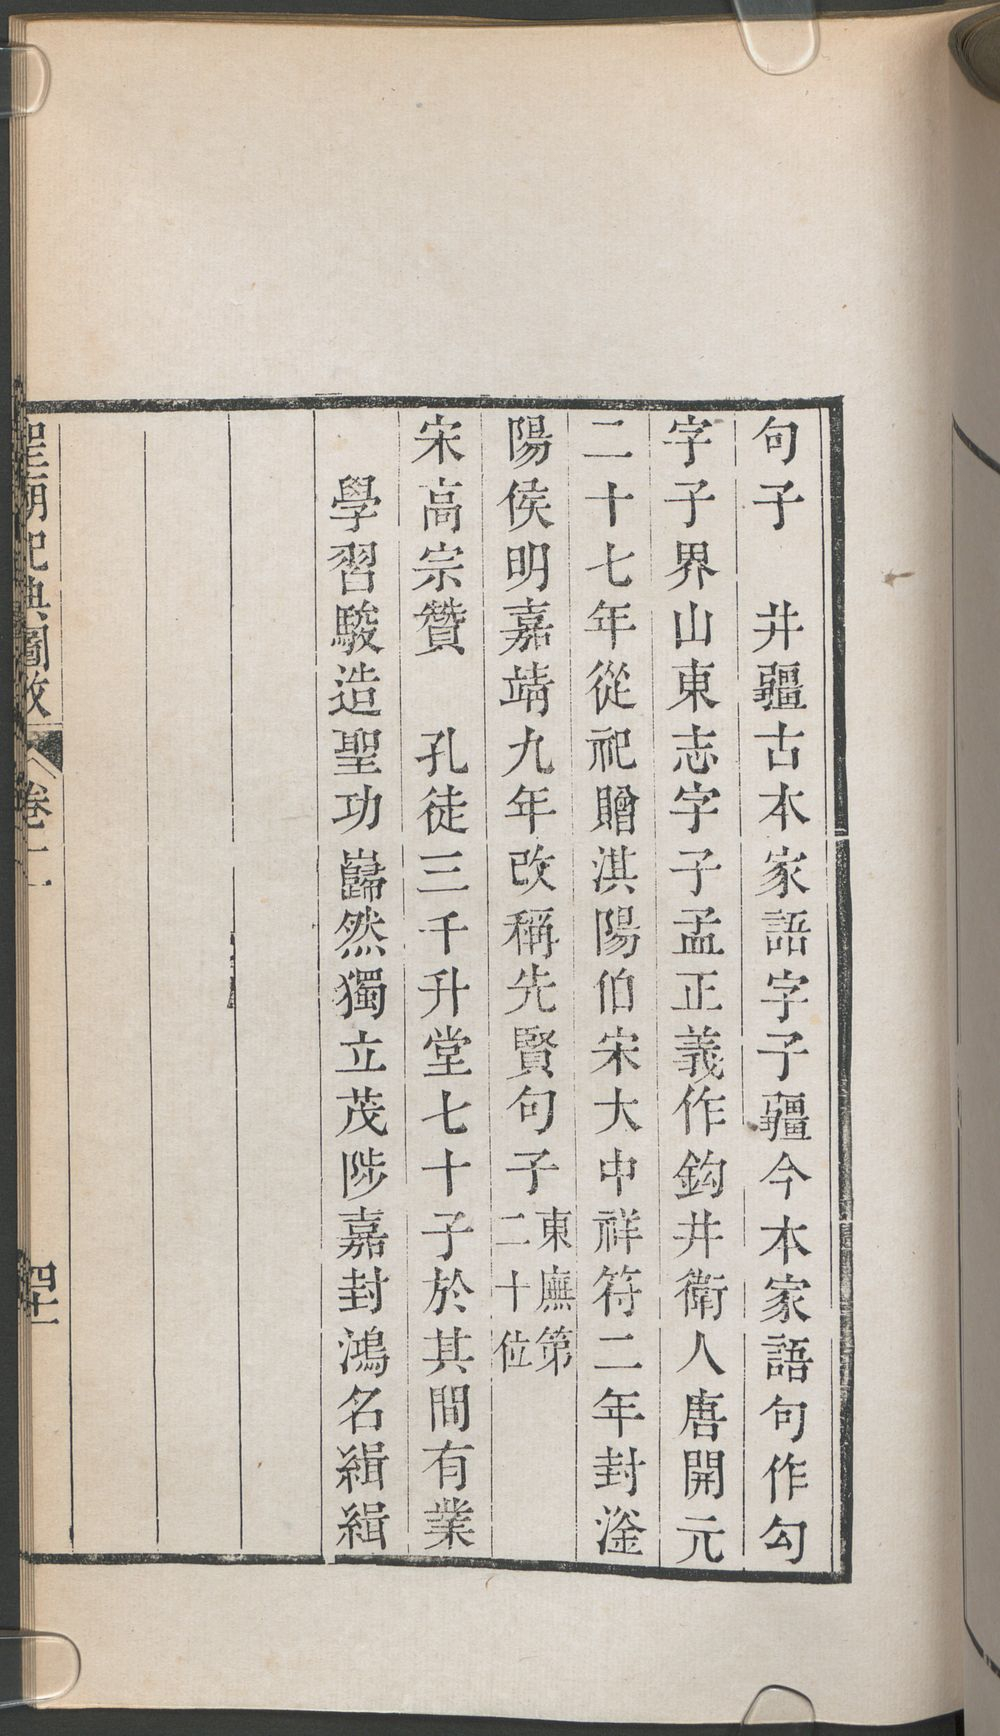 句子　井疆古本家語字子疆今本家語句作勾
字子界山東志字子孟正義作鈎井衛人唐開元
二十七年從祀贈淇陽伯宋大中祥符二年封滏
陽侯明嘉靖九年改稱先賢句子東廡第
二十位
宋高宗贊　孔徒三千升堂七十子於其間有業
學習駿造聖功巋然獨立茂陟嘉封鴻名緝緝
聖廟祀典圖攷
卷二
四十一